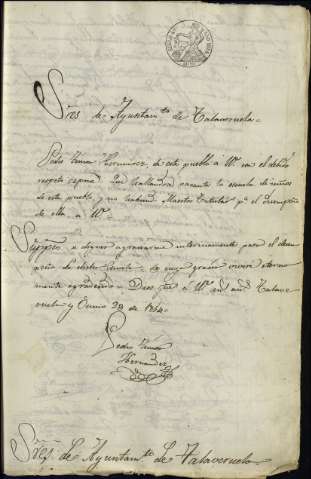 Sres de Ayuntamto de Talaveruela.
Pedro Hernandez de este pueblo á Vs. con el debido
respeto espone: Que hallandose vacante la escuela de niños
de este pueblo, y no habiendo Maestro pa el desempeño
de ella, á Vs.
Suplica se dignen agraciarme interinamente para el desem
peño de dicha Escuela, de cuya gracia vivirá eterna
mente agradecido. Dios á Vs. Talave
ruela y Junio 29 de
Pedro
Hernandez
Sres. de Ayuntamto de Talaveruela